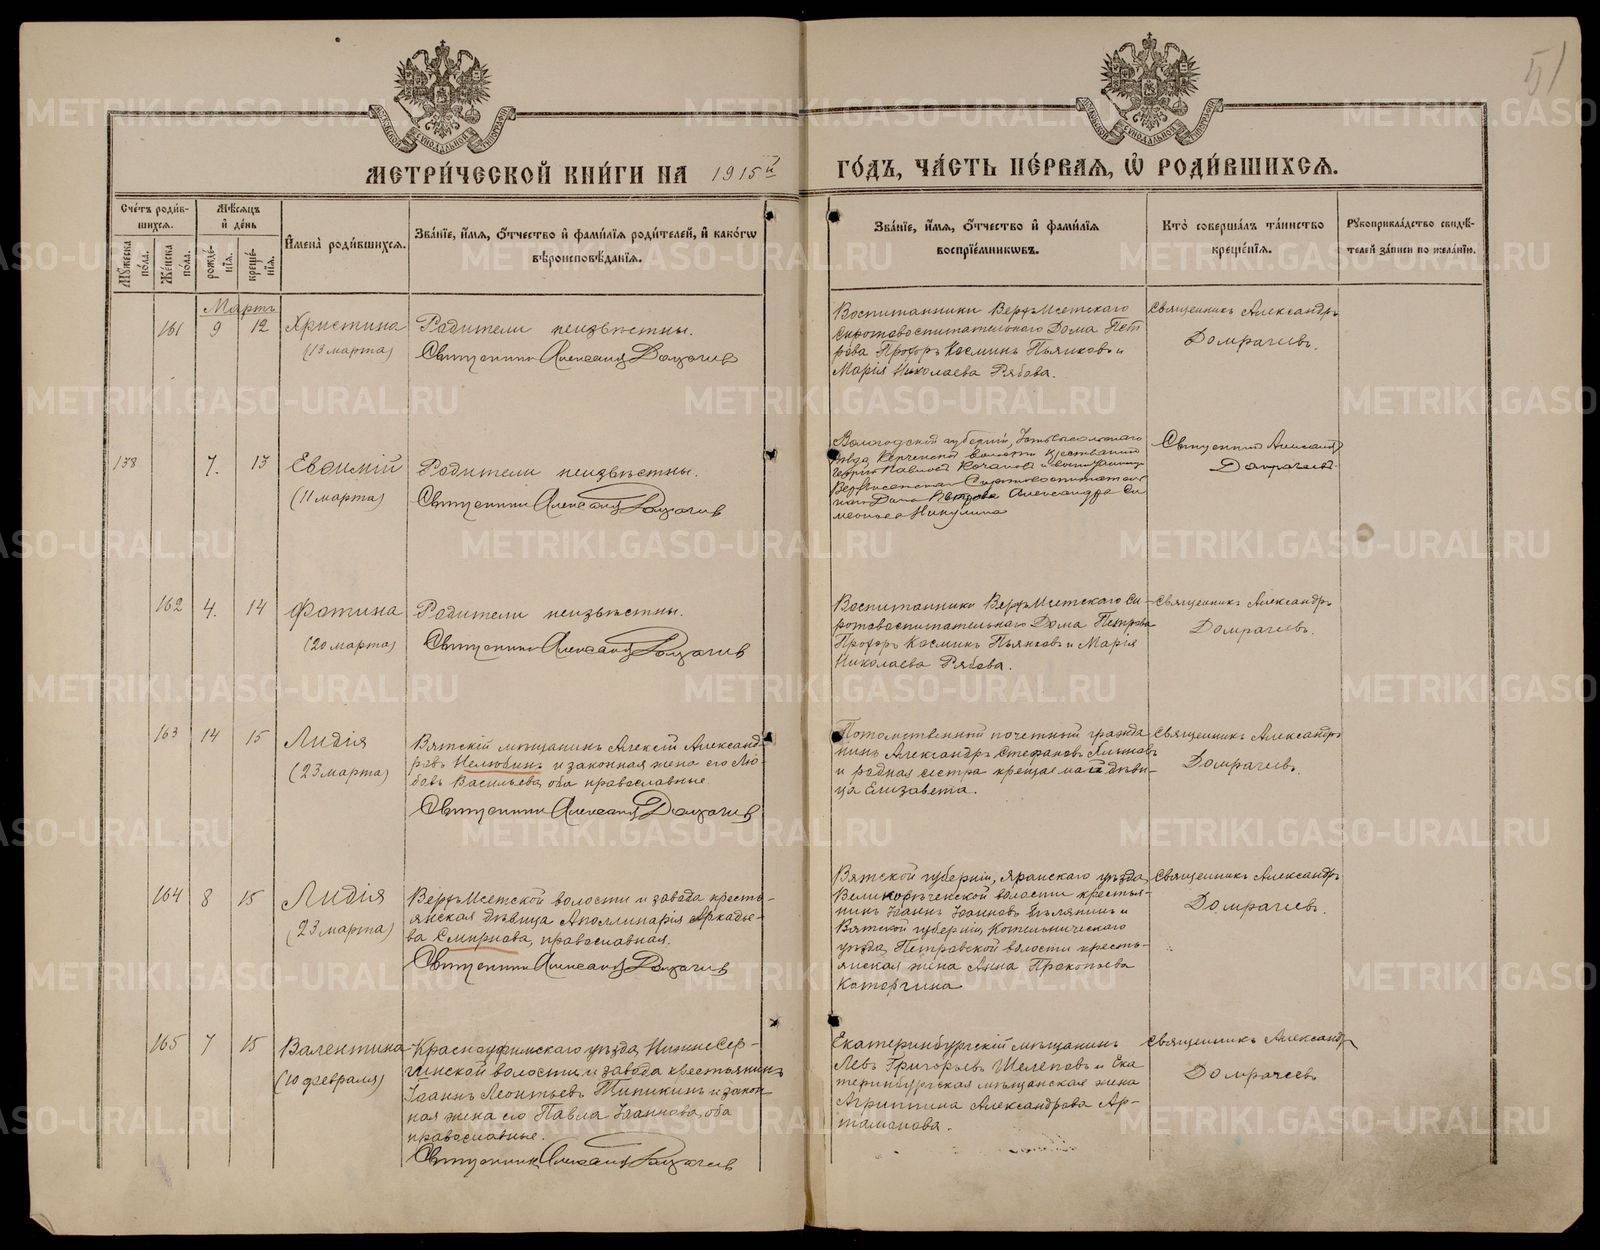 51
МЕТРИ́ЧЕСКОЙ КНИ́ГИ НА 1915й ГО́ДЪ, ЧА́СТЬ ПЕ́РВАЯ, Ѡ РОДИ́ВШИХСЯ.
Сче́тъ роди́в-
шихся.
Му́жеска по́ла.
Же́нска по́ла.
Мѣ́сяцъ и де́нь
рожде́-
нїя.
креще́-
нїя.
И҆мена̀ роди́вшихся.
Зва́нїе, и҆́мя, ѻ҆́тчество и҆ фами́лїя роди́телей, и҆ како́гѡ
вѣроисповѣ́данїя.
Зва́нїе, и҆́мя, ѻ҆́тчество и҆ фами́лїя
воспрїе́мниковъ.
Кто̀ соверша́лъ та́инство
креще́нїя.
Рꙋкоприкла́дство свидѣ́-
телей за́писи по жела́нїю.
Мартъ
161 9 12 Христина
(13 марта)
Родители неизвѣстны.
Священникъ Александръ Домрачевъ
Воспитанники Верхъ-Исетскаго
Сиротовоспитательнаго Дома Пет
рова Прохоръ Косминъ Пьянковъ и
Марія Николаева Рябова.
Священникъ Александръ
Домрачевъ.
138 7. 13 Евѳимій
(11 марта)
Родители неизвѣстны.
Священникъ Александръ Домрачевъ
Вологодской губерніи, Устьсысольскаго
уѣзда, Керчемской волости крестьянинъ
Павловъ Кочановъ и воспитанница
Верхъисетскаго Сиротовоспитатель
наго Дома Петрова Александра Си
меонова Никулина
Священникъ Александръ
Домрачевъ.
162 4. 14 Фотина
(20 марта)
Родители неизвѣстны.
Священникъ Александръ Домрачевъ
Воспитанники Верхъ-Исетскаго Си-
ротовоспитательнаго Дома Петрова
Прохоръ Косминъ Пьянковъ и Марія
Николаева Рябова.
Священникъ Александръ
Домрачевъ.
163 14 15 Лидія
(23 марта)
Вятскій мѣщанинъ Алексій Александ-
ровъ Нелюбинъ и законная жена его Лю-
бовь Васильева, оба православные.
Священникъ Александръ Домрачевъ
Потомственный почетный гражда
нинъ Александръ Стефановъ
и родная сестра крещаемой дѣви-
ца Елизавета.
Священникъ Александръ
Домрачевъ.
164 8 15 Лидія
(23 марта)
Верхъ-Исетской волости и завода кресть-
янская дѣвица Аполлинарія Аркадье-
ва Смирнова, православная.
Священникъ Александръ Домрачевъ
Вятской губерніи, Яранскаго уѣзда
Великорѣченской волости крестья-
нинъ Іоаннъ Іоанновъ и
Вятской губерніи, Котельническаго
уѣзда, Петровской волости кресть-
янская жена Анна Прокопьева
Каторгина
Священникъ Александръ
Домрачевъ.
165 7 15 Валентина
(10 февраля)
Красноуфимскаго уѣзда, Нижне-Сер-
гинской волости и завода крестьянинъ
Іоаннъ Леонтьевъ Типикинъ и закон-
ная жена его Павла Іоаннова, оба
православные.
Священникъ Александръ Домрачевъ
Екатеринбургскій мѣщанинъ
Левъ Григорьевъ Шелеповъ и Ека
теринбургская мѣщанская жена
Агриппина Александрова Ар-
тамонова.
Священникъ Александръ
Домрачевъ
METRIKI.GASO-URAL.RU